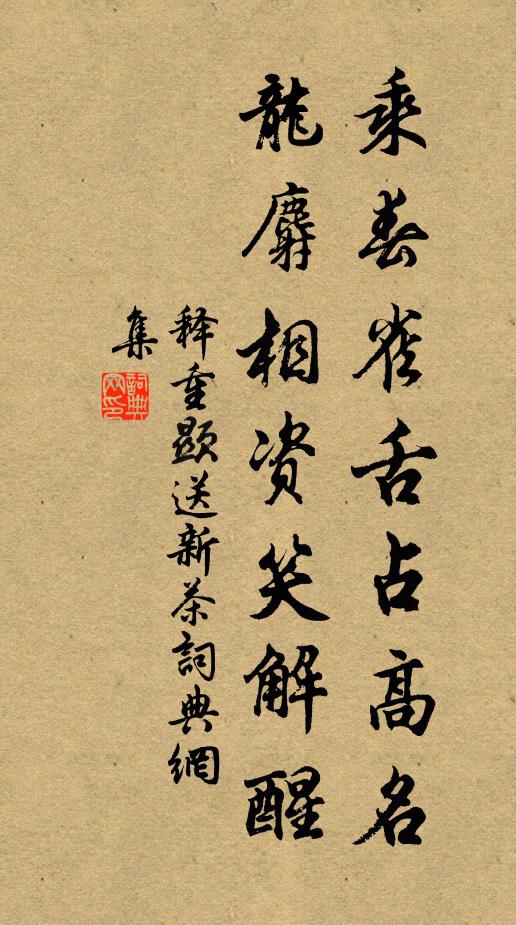 乘春雀舌占高名
龍麝相资笑解醒
释重顯送新茶詞典網
集
詞典網印